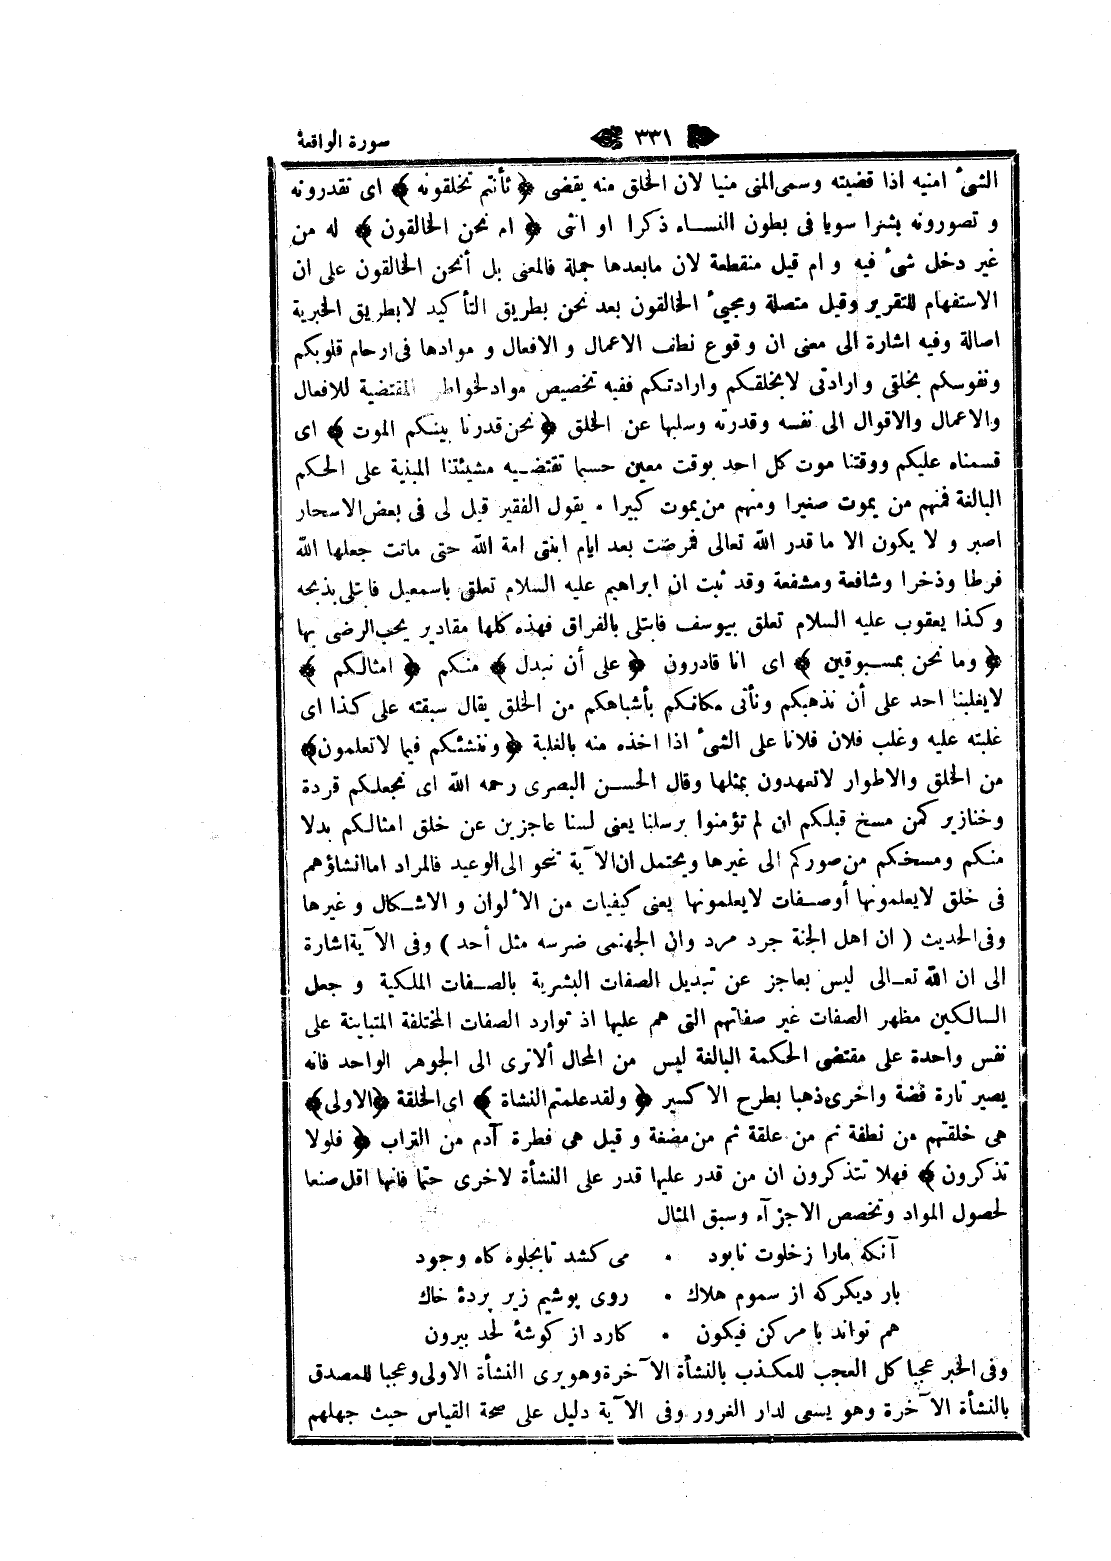 سورة الواقعة
٣٣١
الشىء امنيه اذا قضيته وسمى المنى منيا لان الخلق منه يقضى ﴿ ءأنتم تخلقونه ﴾ اى تقدرونه
و تصورونه بشرا سويا فى بطون النساء ذكرا او انثى ﴿ ام نحن الخالقون ﴾ له من
غير دخل شىء فيه و ام قيل منقطعة لان مابعدها جملة فالمعنى بل أنحن الخالقون على ان
الاستفهام للتقرير وقيل متصلة ومجيىء الخالقون بعد نحن بطريق التأكيد لابطريق الخبرية
اصالة وفيه اشارة الى معنى ان وقوع نطف الاعمال و الافعال و موادها فى ارحام قلوبكم
ونفوسكم بخلقى و ارادتى لابخلقكم وارادتكم ففيه تخصيص مواد لخواطر المقتضية للافعال
والاعمال والاقوال الى نفسه وقدرته وسلبها عن الخلق ﴿ نحن قدرنا بينكم الموت ﴾ اى
قسمناه عليكم ووقتنا موت كل احد بوقت معين حسبما تقتضيه مشيئتنا المبنية على الحكم
البالغة فمنهم من يموت صغيرا ومنهم من يموت كبيرا . يقول الفقير قيل لى فى بعض الاسحار
اصبر و لا يكون الا ما قدر الله تعالى فمرضت بعد ايام ابنتى امة الله حتى ماتت جعلها الله
فرطا وذخرا وشافعة ومشفعة وقد ثبت ان ابراهيم عليه السلام تعلق باسمعيل فابتلى بذبحه
وكذا يعقوب عليه السلام تعلق بيوسف فابتلى بالفراق فهذه كلها مقادير يجب الرضى بها
﴿ وما نحن بمسبوقين ﴾ اى انا قادرون ﴿ على أن نبدل ﴾ منكم ﴿ امثالكم ﴾
لايغلبنا احد على أن نذهبكم ونأتى مكانكم بأشباهكم من الخلق يقال سبقته على كذا اى
غلبته عليه وغلب فلان فلانا على الشىء اذا اخذه منه بالغلبة ﴿ وننشئكم فيما لاتعلمون﴾
من الخلق والاطوار لاتعهدون بمثلها وقال الحسن البصرى رحمه الله اى نجعلكم قردة
وخنازير كمن مسخ قبلكم ان لم تؤمنوا برسلنا يعنى لسنا عاجزين عن خلق امثالكم بدلا
منكم ومسخكم من صوركم الى غيرها ويحتمل ان الآية تنحو الى الوعيد فالمراد اما انشاؤهم
فى خلق لايعلمونها أوصفات لايعلمونها يعنى كيفيات من الألوان و الاشكال و غيرها
وفى الحديث ( ان اهل الجنة جرد مرد وان الجهنمى ضرسه مثل أحد ) وفى الآية اشارة
الى ان الله تعالى ليس بعاجز عن تبديل الصفات البشرية بالصفات الملكية و جعل
السالكين مظهر الصفات غير صفاتهم التى هم عليها اذ توارد الصفات المختلفة المتباينة على
نفس واحدة على مقتضى الحكمة البالغة ليس من المحال ألاترى الى الجوهر الواحد فانه
يصير تارة فضة واخرى ذهبا بطرح الاكسير ﴿ ولقد علمتم النشاة ﴾ اى الخلقة ﴿الاولى﴾
هى خلقتهم من نطفة ثم من علقة ثم من مضغة و قيل هى فطرة آدم من التراب ﴿ فلولا
تذكرون ﴾ فهلا تتذكرون ان من قدر عليها قدر على النشأة لاخرى حتما فانها اقل صنعا
لحصول المواد وتخصص الاجزآء وسبق المثال
آنكه مارا زخلوت نابود . مى كشد تابجلوه كاه وجود
بار ديكركه از سموم هلاك . روى پوشيم زير پردۀ خاك
هم تواند بامركن فيكون . كارد از كوشۀ لحد بيرون
وفى الخبر عجبا كل العجب للمكذب بالنشأة الآخرة وهو يرى النشأة الاولى وعجبا للمصدق
بالنشأة الآخرة وهو يسعى لدار الغرور وفى الآية دليل على صحة القياس حيث جهلهم